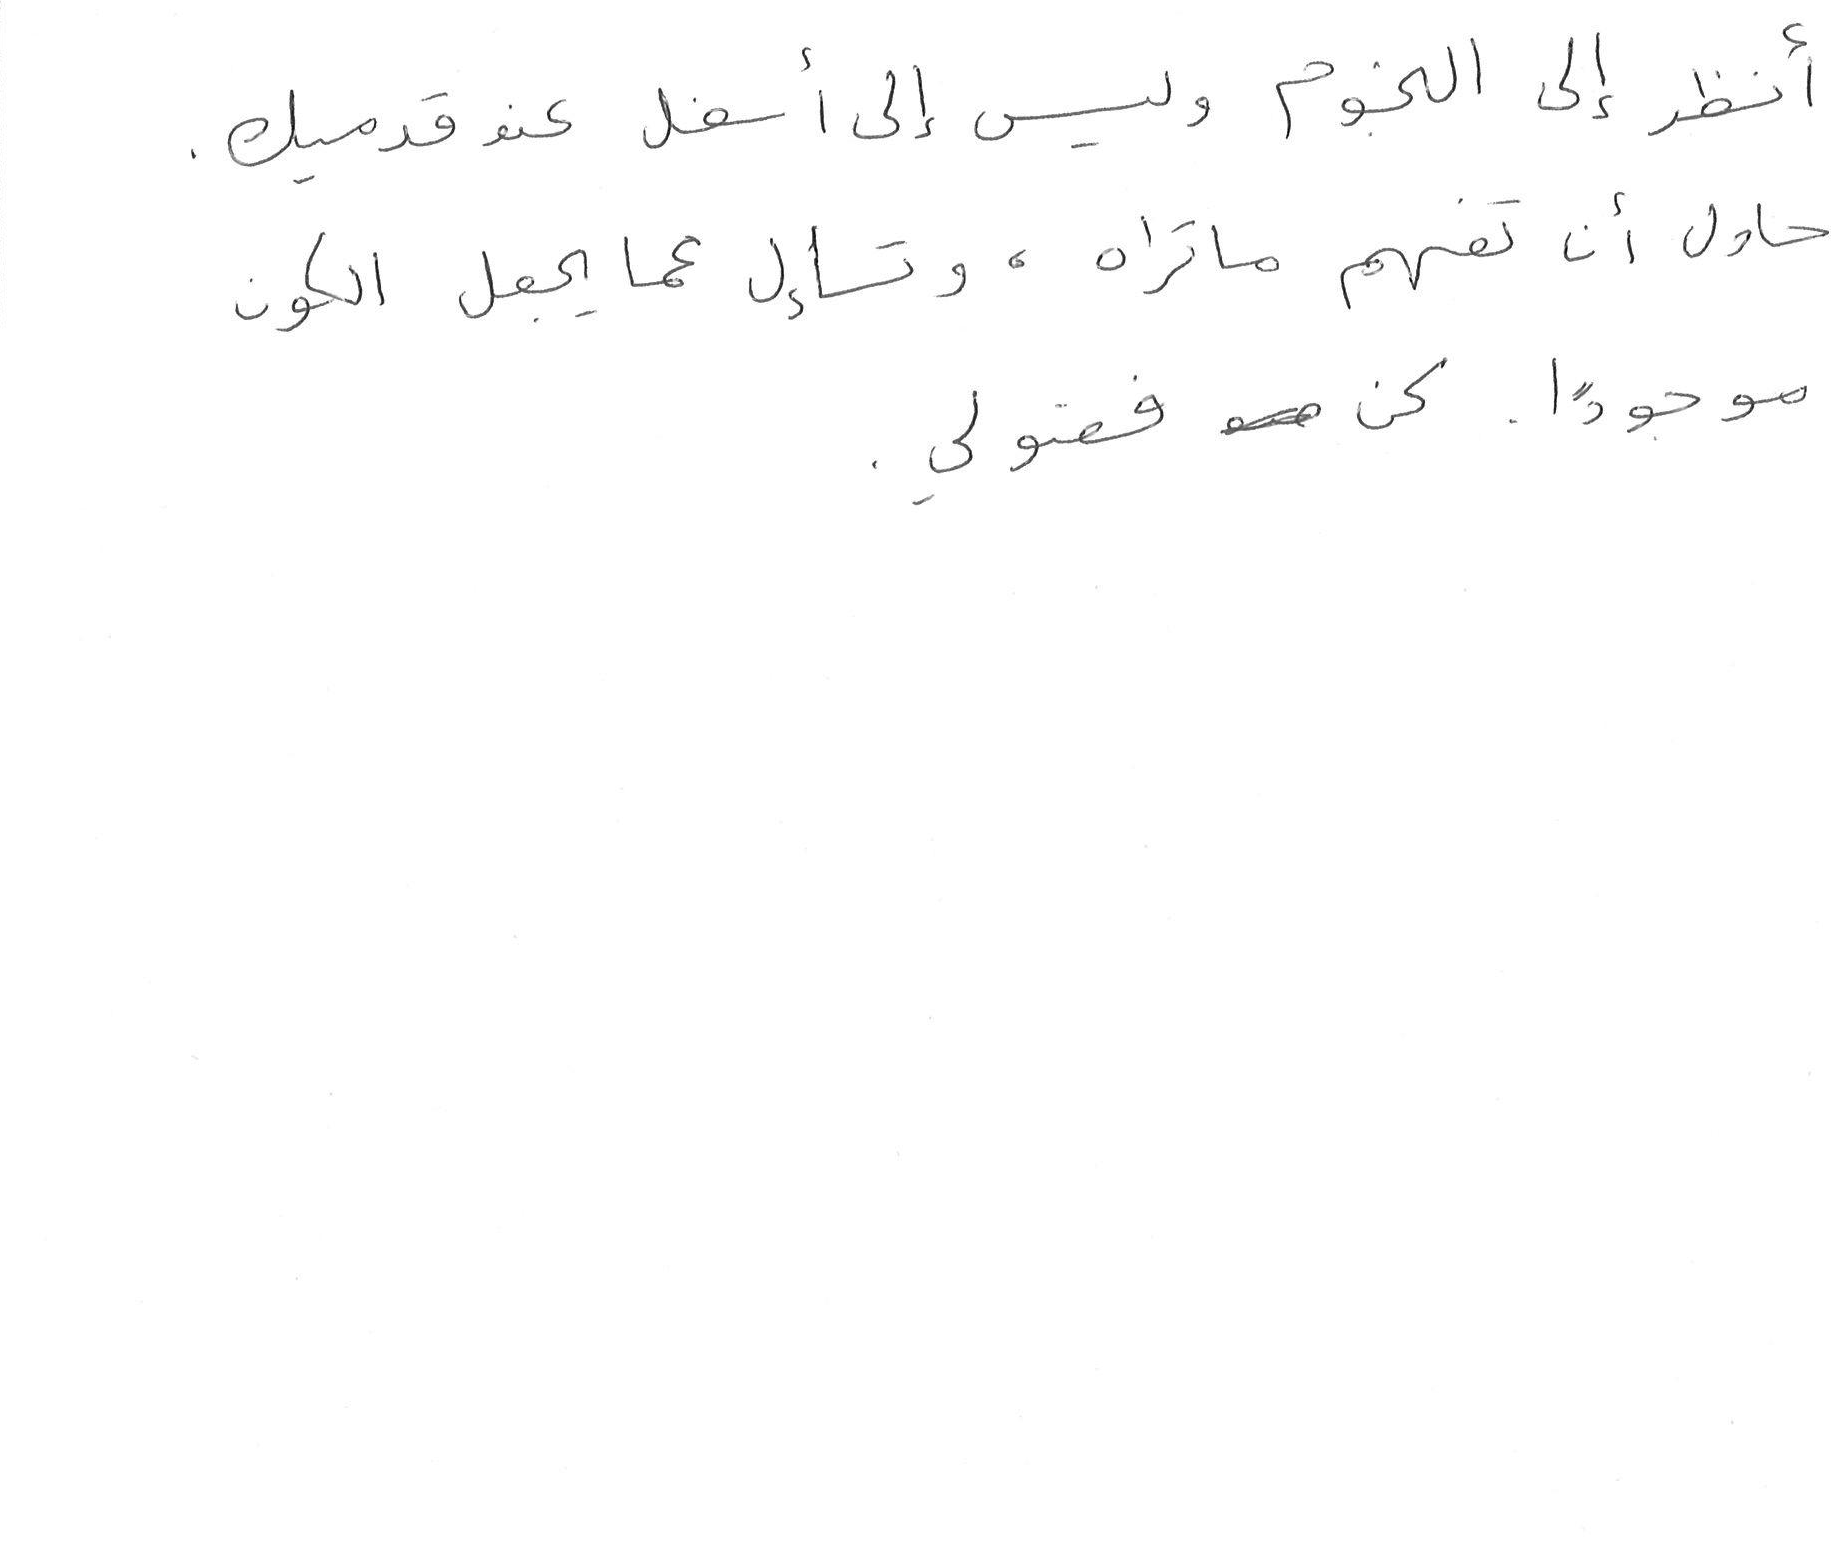 أنظر إلى النجوم وليس إلى أسفل عند قدميك.
حاول أن تفهم ما تراه ، و تسإل عما يجعل الكون
موجودًا. كن فضولي.